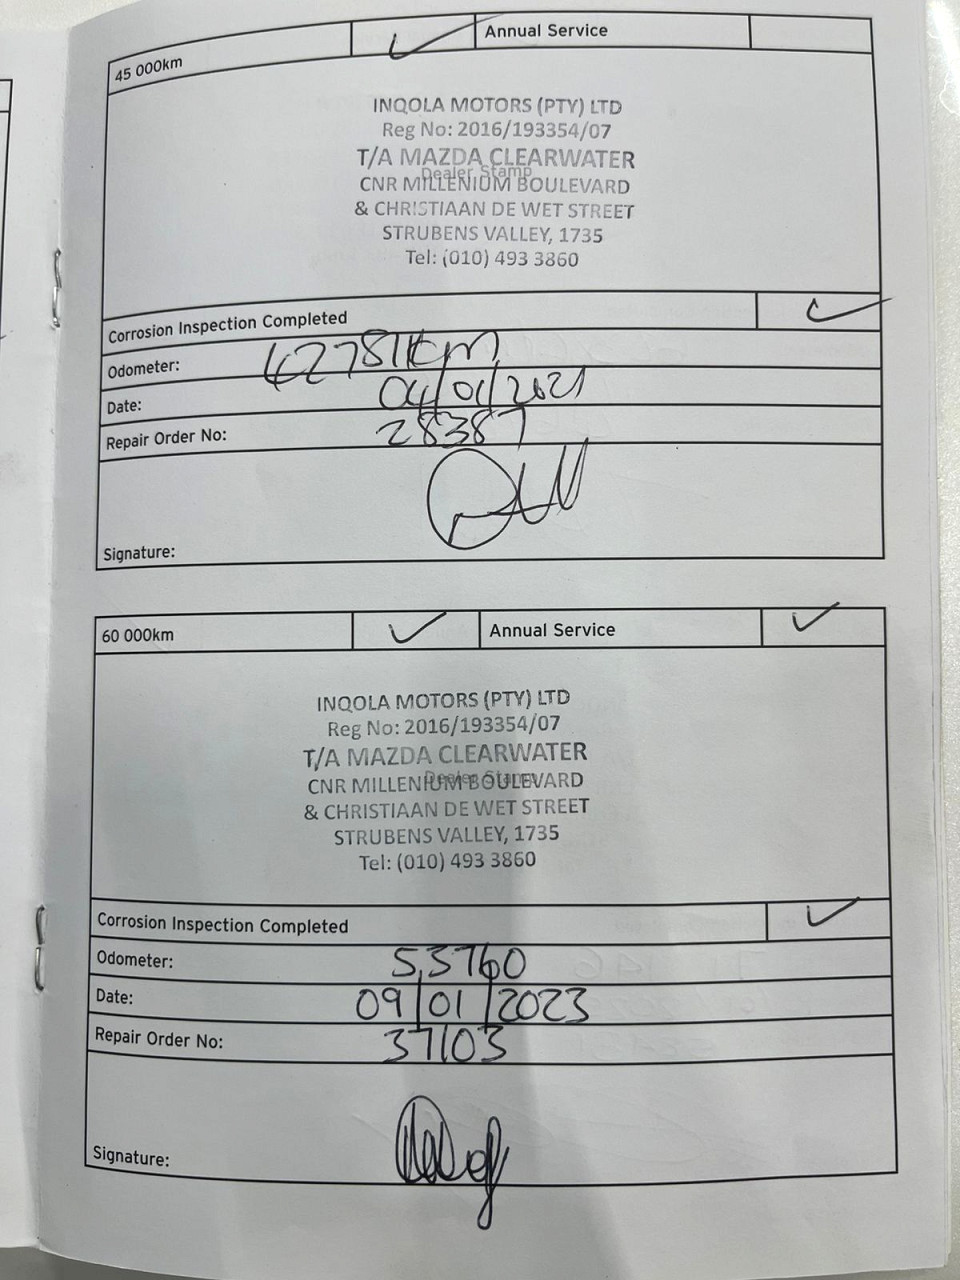 45 000km Annual Service
INQOLA MOTORS (PTY) LTD
Reg No: 2016/193354/07
T/A MAZDA CLEARWATER
Dealer Stamp
CNR MILLENIUM BOULEVARD
& CHRISTIAAN DE WET STREET
STRUBENS VALLEY, 1735
Tel: (010) 493 3860
Corrosion Inspection Completed
Odometer: 42781km
Date: 04/01/2021
Repair Order No: 28387
Signature:
60 000km Annual Service
INQOLA MOTORS (PTY) LTD
Reg No: 2016/193354/07
T/A MAZDA CLEARWATER
Dealer Stamp
CNR MILLENIUM BOULEVARD
& CHRISTIAAN DE WET STREET
STRUBENS VALLEY, 1735
Tel: (010) 493 3860
Corrosion Inspection Completed
Odometer: 53760
Date: 09/01/2023
Repair Order No: 37103
Signature: